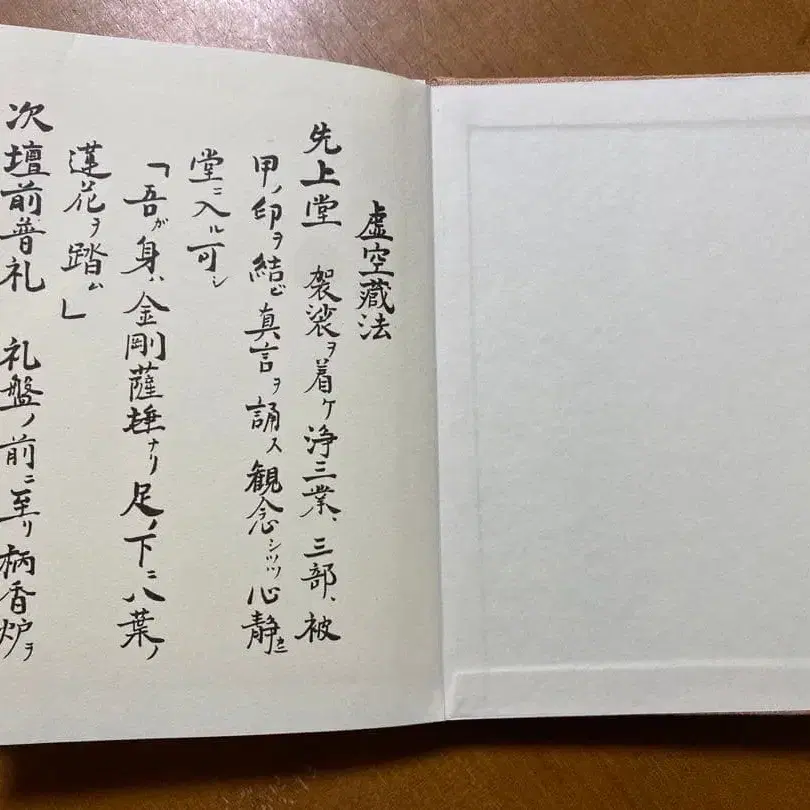 虚空蔵法
先上堂 袈裟ヲ着ケ浄三業、三部、被
甲ノ印ヲ結ビ真言ヲ誦ス観念シツツ心静ニ
堂ニ入ル可シ
「吾ガ身ハ金剛薩埵ナリ足ノ下ニ八葉ノ
蓮花ヲ踏ム」
次壇前普礼 礼盤ノ前ニ至リ柄香炉ヲ